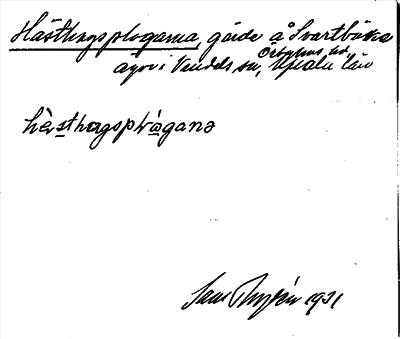 Hästhagsplogarna, gärde å Svartbäcks
ägor i Vendels sn, Örbyhus hd, Upsala län
hästhagsplɷ̀ganɘ
1931